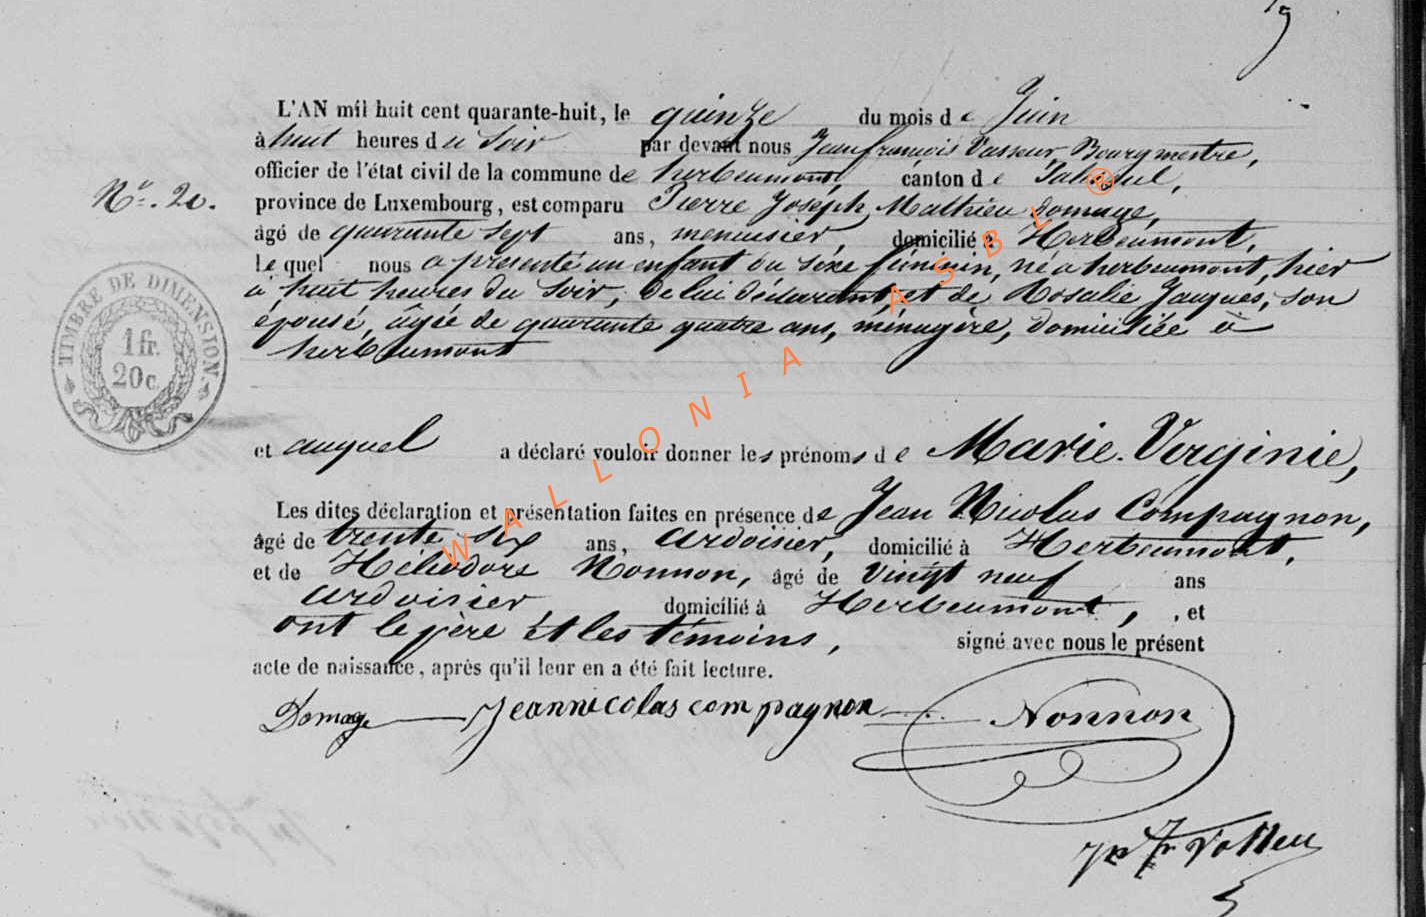 19
L'AN mil huit cent quarante-huit, le quinze du mois de Juin
à huit heures du Soir par devant nous Jean françois Vasseur Bourgmestre,
officier de l'état civil de la commune de herbeumont, canton de Paliseul,
Nº. 20. province de Luxembourg, est comparu Pierre Joseph Mathieu Domage,
âgé de quarante sept ans, menuisier, domicilié à Herbeumont,
lequel nous a présenté un enfant du sexe féminin, né a herbeumont, hier
à huit heures du Soir, de lui déclarant et de Rosalie Jacques, son
épouse, âgée de quarante quatre ans, ménagère, domiciliée à
herbeumont
TIMBRE DE DIMENSION
1 fr.
20 c.
et auquel a déclaré vouloir donner les prénoms de Marie Virginie,
Les dites déclaration et présentation faites en présence de Jean Nicolas Compagnon,
âgé de trente six ans, ardoisier, domicilié à Herbeumont,
et de Héliodore Nonnon, âgé de vingt neuf ans
ardoisier domicilié à Herbeumont, , et
ont le père et les témoins, signé avec nous le présent
acte de naissance, après qu'il leur en a été fait lecture.
Domage Jean nicolas compagnon Nonnon
WALLONIA ASBL ®